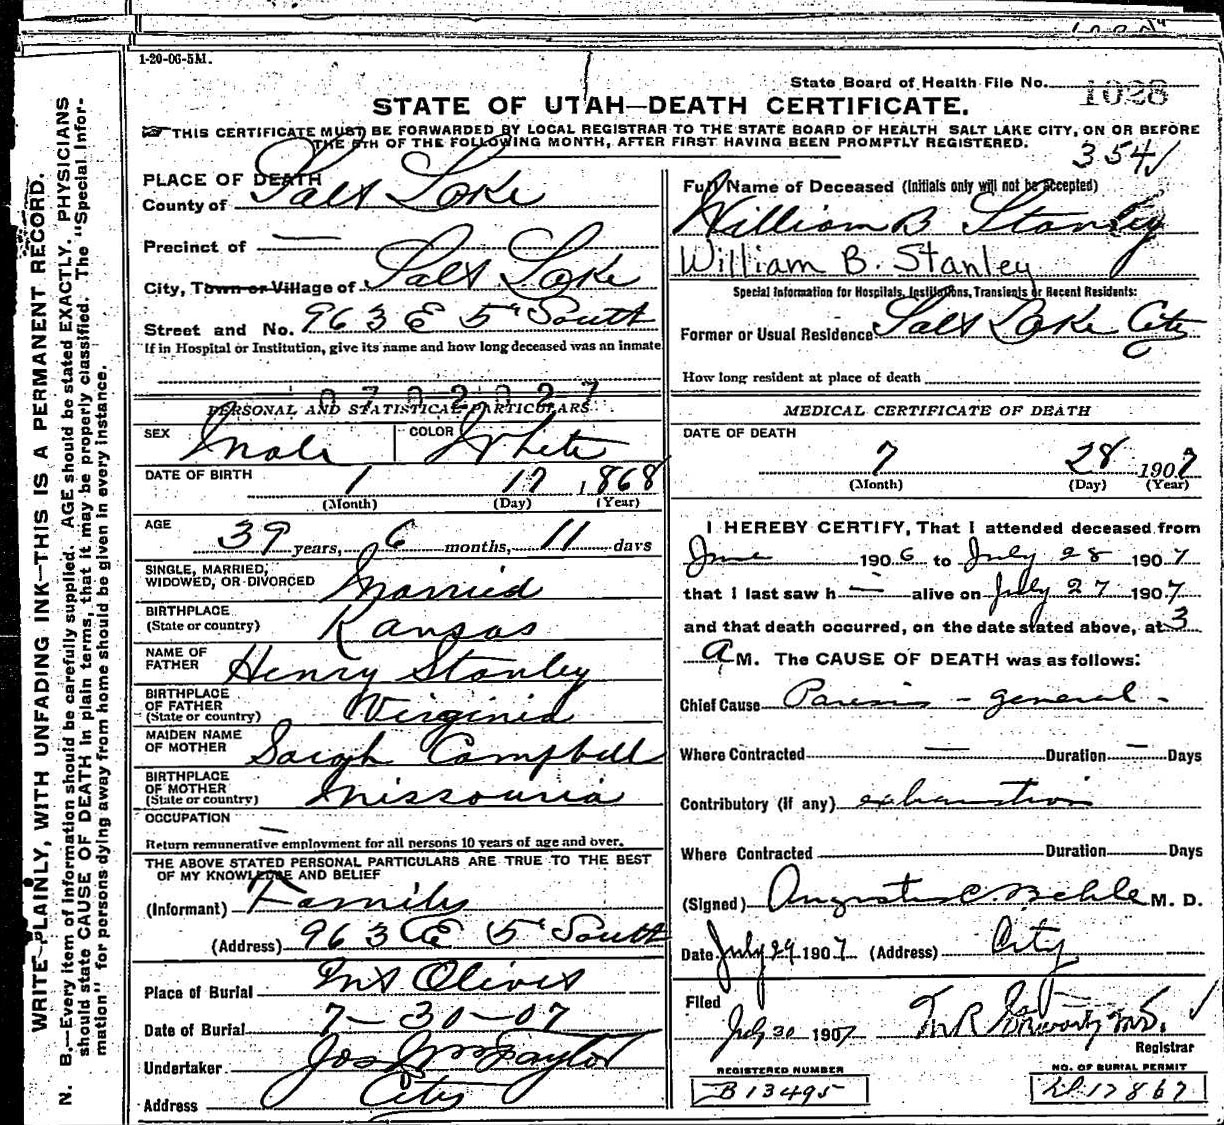 1-20-06-5M.
State Board of Health File No. 1028
STATE OF UTAH—DEATH CERTIFICATE.
THIS CERTIFICATE MUST BE FORWARDED BY LOCAL REGISTRAR TO THE STATE BOARD OF HEALTH SALT LAKE CITY, ON OR BEFORE
THE 5TH OF THE FOLLOWING MONTH, AFTER FIRST HAVING BEEN PROMPTLY REGISTERED.
354
WRITE PLAINLY, WITH UNFADING INK—THIS IS A PERMANENT RECORD.
N. B.—Every item of information should be carefully supplied. AGE should be stated EXACTLY. PHYSICIANS
should state CAUSE OF DEATH in plain terms, that it may be properly classified. The "Special Infor-
mation" for persons dying away from home should be given in every instance.
PLACE OF DEATH
County of Salt Lake
Precinct of —
City, Town or Village of Salt Lake
Street and No. 963 E 5" South
If in Hospital or Institution, give its name and how long deceased was an inmate
0702027
PERSONAL AND STATISTICAL PARTICULARS
SEX Male COLOR White
DATE OF BIRTH 1 17 1868
(Month) (Day) (Year)
AGE 39 years, 6 months, 11 days
SINGLE, MARRIED,
WIDOWED, OR DIVORCED Married
BIRTHPLACE
(State or country) Kansas
NAME OF
FATHER Henry Stanley
BIRTHPLACE
OF FATHER
(State or country) Virginia
MAIDEN NAME
OF MOTHER Saigh Campbell
BIRTHPLACE
OF MOTHER
(State or country) Missouria
OCCUPATION —
Return remunerative employment for all persons 10 years of age and over.
THE ABOVE STATED PERSONAL PARTICULARS ARE TRUE TO THE BEST
OF MY KNOWLEDGE AND BELIEF
(Informant) Family
(Address) 963 E 5" South
Place of Burial Mt Olivet
Date of Burial 7-30-07
Undertaker Jos Wm Taylor
Address City
Full Name of Deceased (Initials only will not be accepted)
William B Stanley
William B. Stanley
Special Information for Hospitals, Institutions, Transients or Recent Residents:
Former or Usual Residence Salt Lake City
How long resident at place of death
MEDICAL CERTIFICATE OF DEATH
DATE OF DEATH
7 28 1907
(Month) (Day) (Year)
I HEREBY CERTIFY, That I attended deceased from
June 1906 to July 28 1907
that I last saw h — alive on July 27 1907
and that death occurred, on the date stated above, at 3
A M. The CAUSE OF DEATH was as follows:
Chief Cause Paresis - general -
Where Contracted — Duration — Days
Contributory (If any) exhaustion
Where Contracted Duration Days
(Signed) Augustus C. Behle M. D.
Date July 29 1907 (Address) City
Filed
July 30 1907 M.D.
Registrar
REGISTERED NUMBER
B13495
NO. OF BURIAL PERMIT
17867